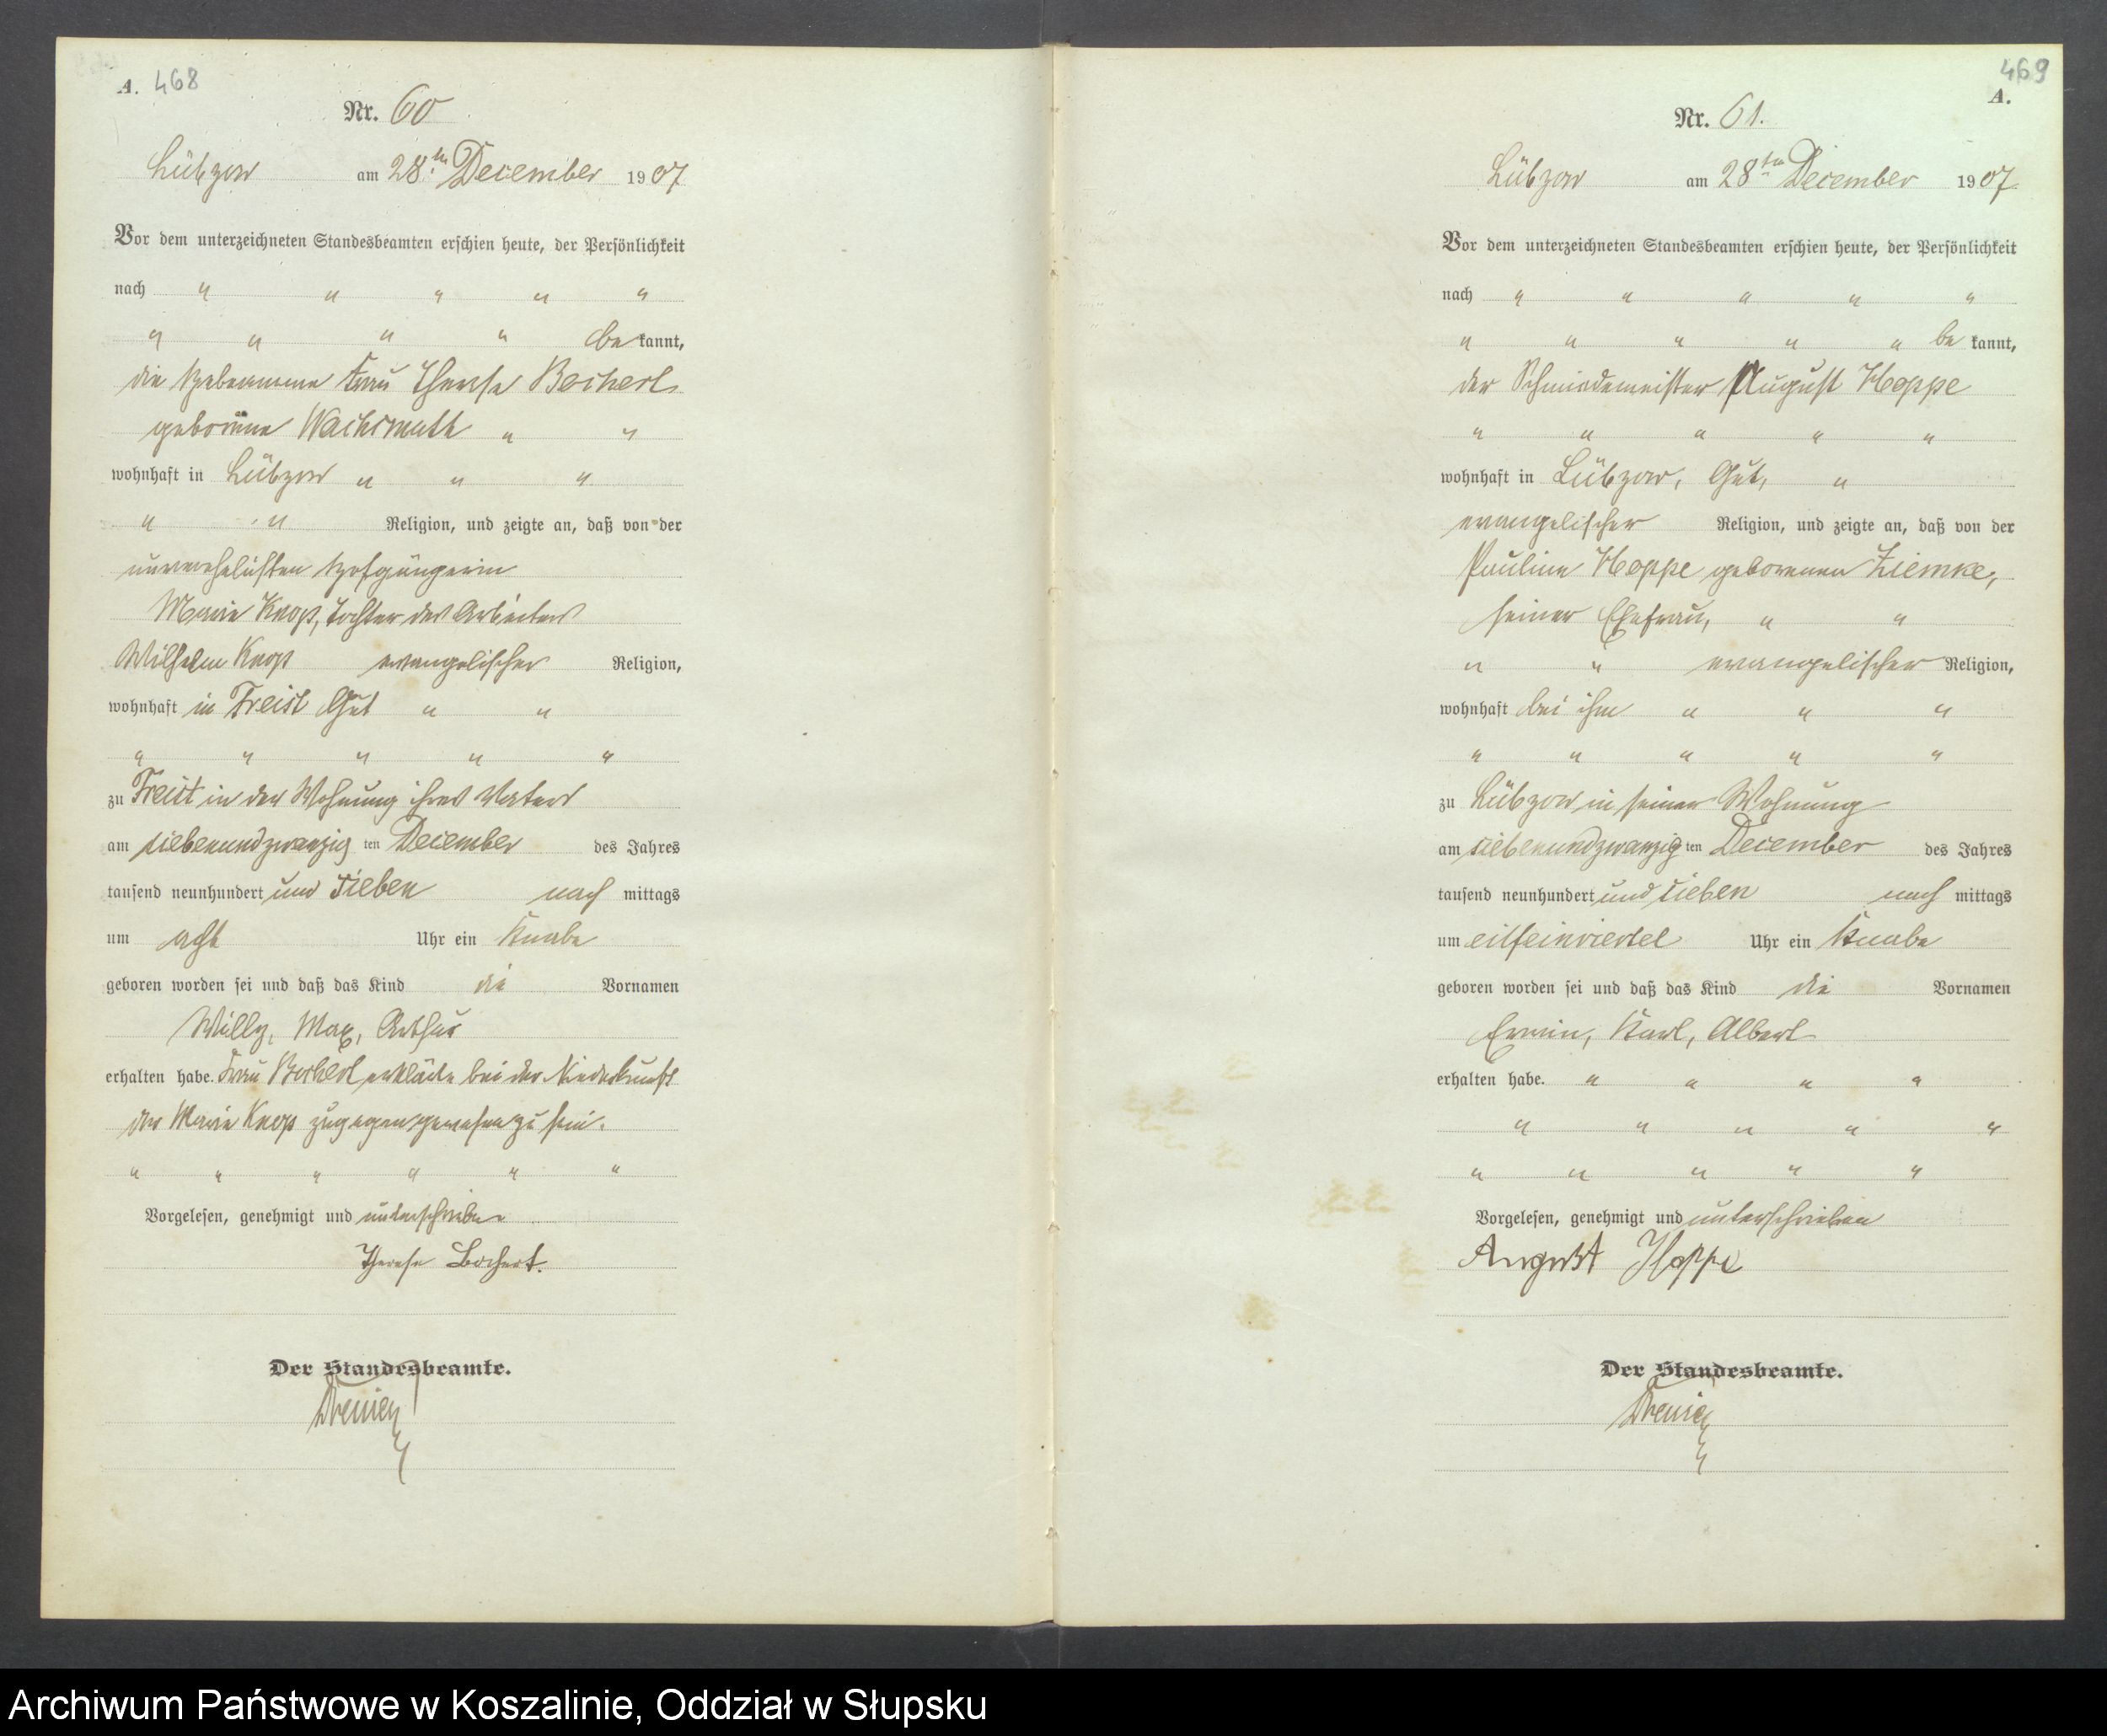 A. 468
Nr. 60
Lübzow am 28ten December 1907
Vor dem unterzeichneten Standesbeamten erschien heute, der Persönlichkeit
nach " " " " "
" " " " bekannt,
die Hebeamme Frau Therese Bochert
geborene Wachsmuth " "
wohnhaft in Lübzow " " "
" " Religion, und zeigte an, daß von der
unverehelichten Hofgängerin
Marie Knop, Tochter des Arbeiters
Wilhelm Knop evangelischer Religion,
wohnhaft in Freist Gut " "
" " " " "
zu Freist in der Wohnung ihres Vaters
am siebenundzwanzig ten December des Jahres
tausend neunhundert und sieben nachmittags
um acht Uhr ein Knabe
geboren worden sei und daß das Kind die Vornamen
Willy, Max, Arthur
erhalten habe. Frau Bochert erklärte bei der Niederkunft
der Marie Knop zugegen gewesen zu sein.
" " " " " "
Vorgelesen, genehmigt und unterschrieben
Therese Bochert.
Der Standesbeamte.
469
A.
Nr. 61.
Lübzow am 28ten December 1907.
Vor dem unterzeichneten Standesbeamten erschien heute, der Persönlichkeit
nach " " " " "
" " " " " bekannt,
der Schmiedemeister August Hoppe
" " " " "
wohnhaft in Lübzow, Gut, "
evangelischer Religion, und zeigte an, daß von der
Pauline Hoppe geborenen Ziemke,
seiner Ehefrau, " "
" " evangelischer Religion,
wohnhaft bei ihm " " "
" " " " "
zu Lübzow in seiner Wohnung
am siebenundzwanzig ten December des Jahres
tausend neunhundert und sieben nachmittags
um eilfeinviertel Uhr ein Knabe
geboren worden sei und daß das Kind die Vornamen
Erwin, Karl, Albert
erhalten habe. " " " "
" " " " "
" " " " "
Vorgelesen, genehmigt und unterschrieben
August Hoppe
Der Standesbeamte.
Archiwum Państwowe w Koszalinie, Oddział w Słupsku